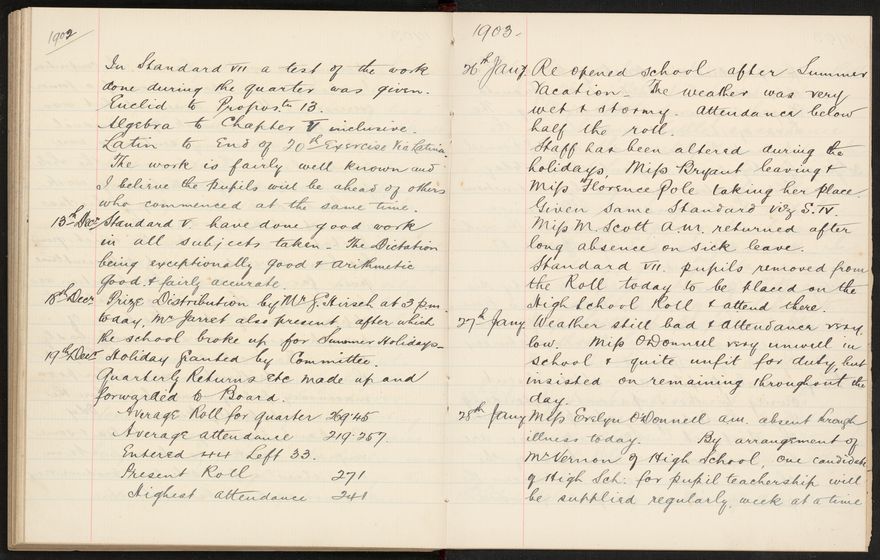 1902
In Standard VII a test of the work
done during the quarter was given.
Euclid to Propostn 13.
Algebra to Chapter V inclusive.
Latin to End of 20th Exercise Via Latina.
The work is fairly well known and
I believe the pupils will be ahead of others
who commenced at the same time.
13th Decr Standard V have done good work
in all subjects taken - The Dictation
being exceptionally good & arithmetic
good & fairly accurate.
18th Decr Prize Distribution by Mr G. Hirsch at 3 pm
today, Mr Jarret also present after which
the school broke up for Summer Holidays -
19th Decr Holiday granted by Committee.
Quarterly Returns etc made up and
forwarded to Board.
Average Roll for quarter 269.45
Average attendance 219.257
Entered Left 33.
Present Roll 271
Highest attendance 241
1903.
26th Jany Re opened school after Summer
Vacation - The weather was very
wet & stormy. Attendance below
half the roll.
Staff has been altered during the
holidays, Miss Bryant leaving &
Miss Florence Pole taking her place.
Given same Standard viz S. IV.
Miss M. Scott a.m. returned after
long absence on sick leave.
Standard VII. pupils removed from
the Roll today to be placed on the
High School Roll & attend there.
27th Jany Weather still bad & attendance very
low. Miss O'Donnell very unwell in
school & quite unfit for duty, but
insisted on remaining throughout the
day.
28th Jany Miss Evelyn O'Donnell a.m. absent through
illness today. By arrangement of
Mr Vernon of High School, one candidate
of High Sch. for pupil teachership will
be supplied regularly, week at a time